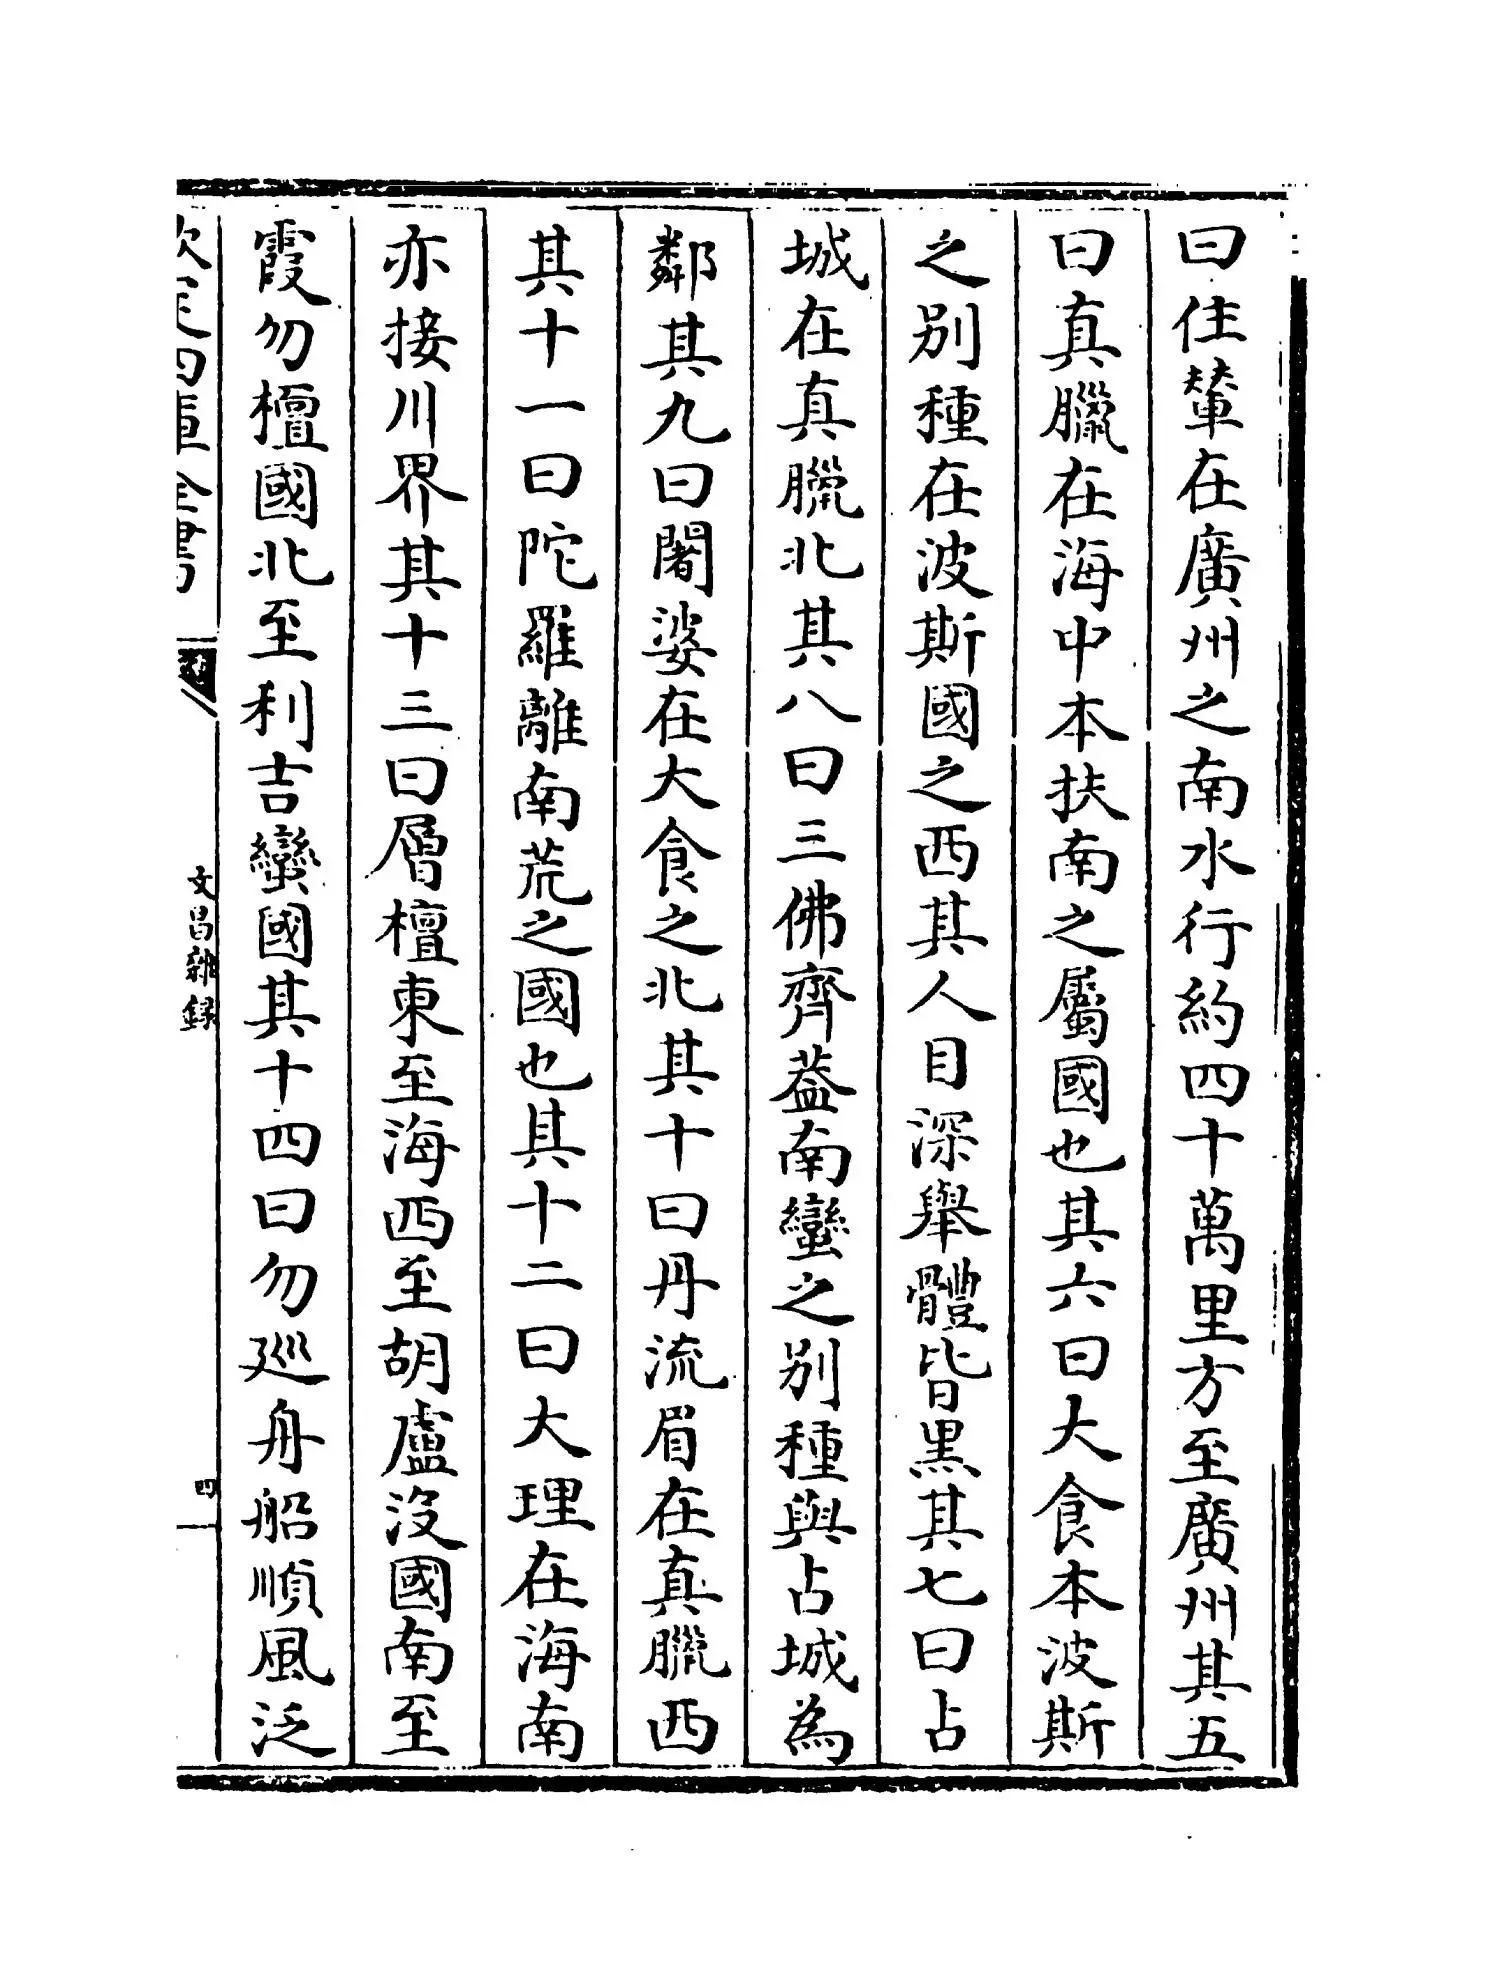 曰住輦在廣州之南水行約四十萬里方至廣州其五
曰真臘在海中本扶南之屬國也其六曰大食本波斯
之别種在波斯國之西其人目深舉體皆黑其七曰占
城在真臘北其八曰三佛齊葢南蠻之别種與占城為
鄰其九曰闍婆在大食之北其十曰丹流眉在真臘西
其十一曰陀羅離南荒之國也其十二曰大理在海南
亦接川界其十三曰層檀東至海西至胡盧没國南至
霞勿檀國北至利吉蠻國其十四曰勿廵舟船順風泛
欽定四庫全書
文昌雜録
四